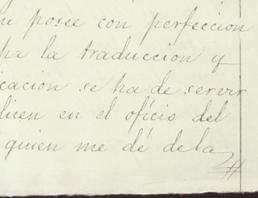 posee con perfeccion
ha la traduccion y
cacion se ha de servir
licen en el oficio del
quien me dé dela